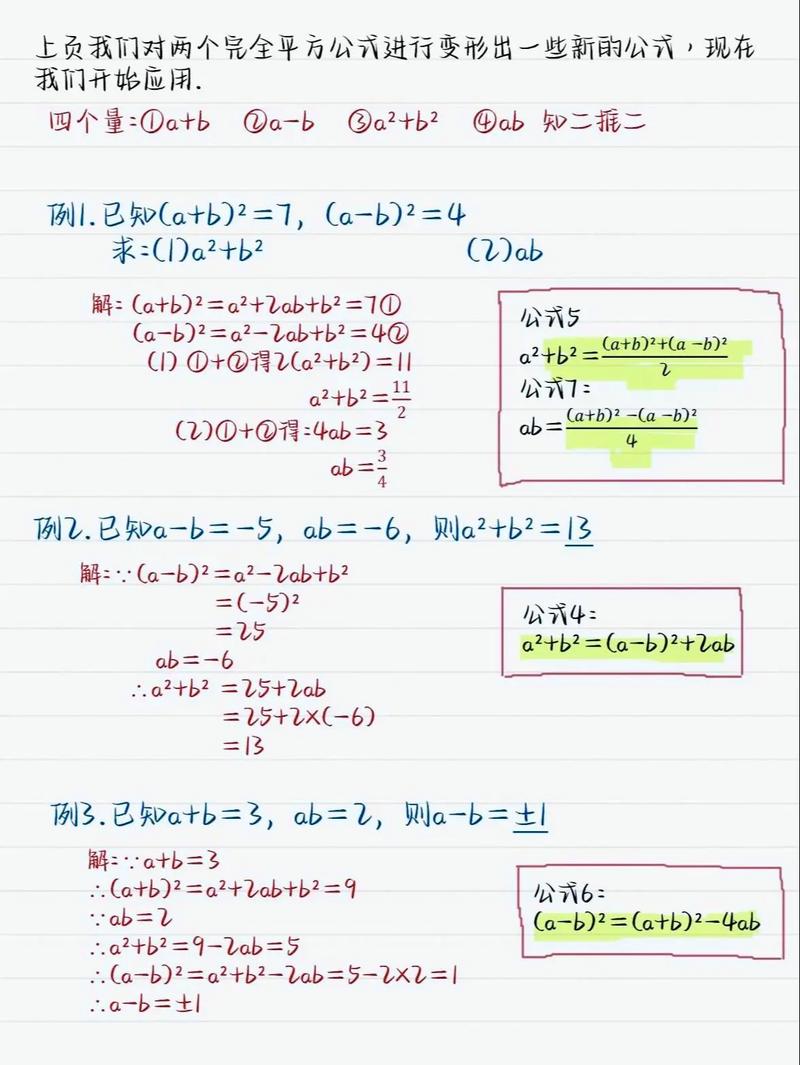 上页我们对两个完全平方公式进行变形出一些新的公式，现在
我们开始应用.
四个量:①a+b ②a-b ③a²+b² ④ab 知二推二
例1.已知(a+b)²=7, (a-b)²=4
求:(1)a²+b² (2)ab
解:(a+b)²=a²+2ab+b²=7①
(a-b)²=a²-2ab+b²=4②
(1) ①+②得2(a²+b²)=11
a²+b²=11/2
(2)①+②得:4ab=3
ab=3/4
公式5
a²+b²=((a+b)²+(a-b)²)/2
公式7:
ab=((a+b)²-(a-b)²)/4
例2.已知a-b=-5, ab=-6, 则a²+b²=13
解:∵(a-b)²=a²-2ab+b²
=(-5)²
=25
ab=-6
∴a²+b²=25+2ab
=25+2×(-6)
=13
公式4:
a²+b²=(a-b)²+2ab
例3.已知a+b=3, ab=2, 则a-b=±1
解:∵a+b=3
∴(a+b)²=a²+2ab+b²=9
∵ab=2
∴a²+b²=9-2ab=5
∴(a-b)²=a²+b²-2ab=5-2×2=1
∴a-b=±1
公式6:
(a-b)²=(a+b)²-4ab